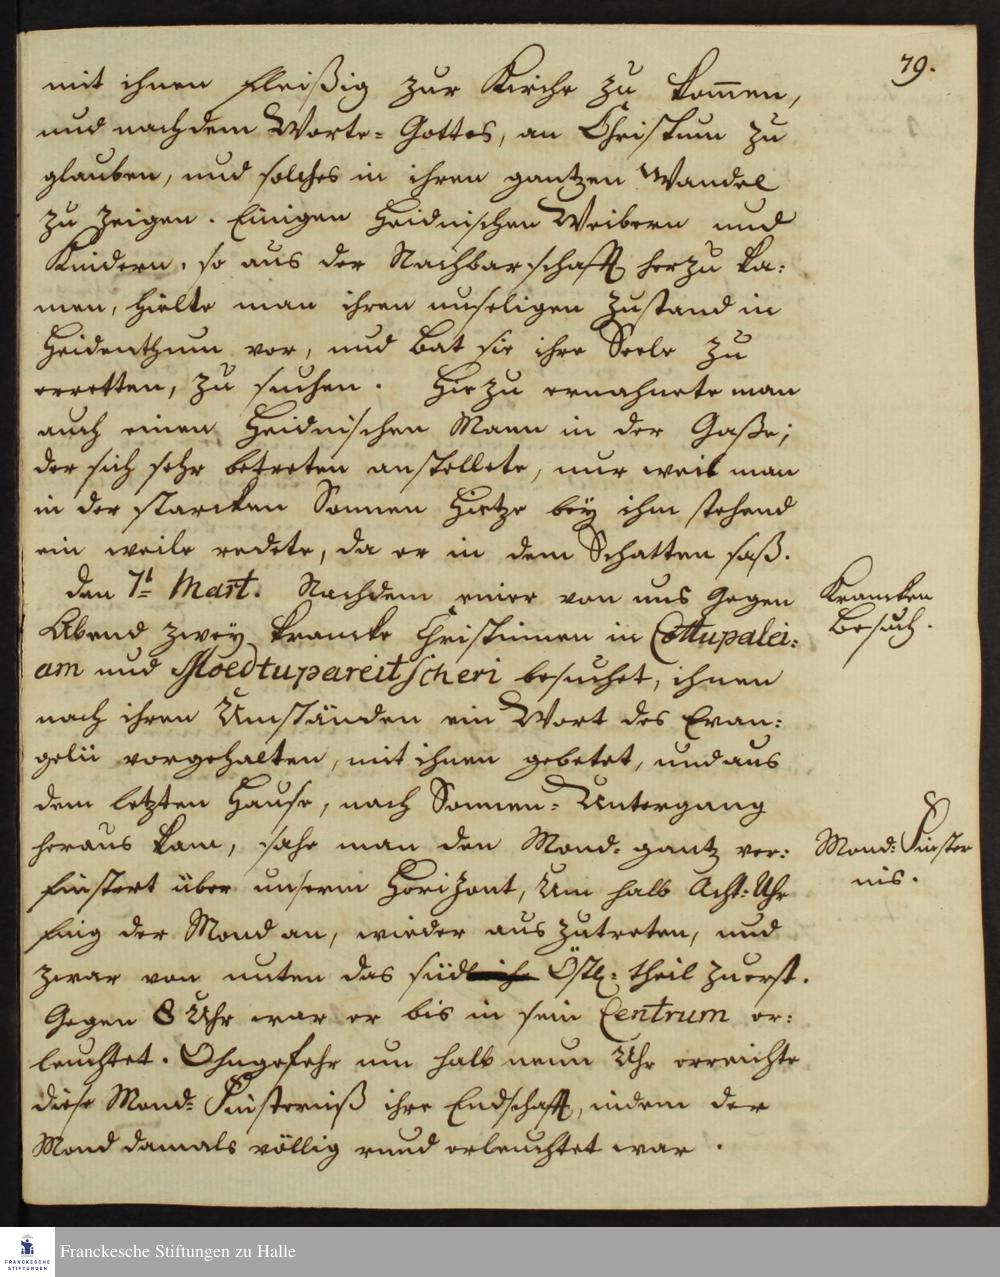 79.
mit ihnen fleißig zur Kirche zu kom̅en,
und nach dem Worte-Gottes, an Christum zu
glauben, und solches in ihren gantzen Wandel
zu zeigen. Einigen Heidnischen Weibern und
Kindern, so aus der Nachbarschafft herzu ka-
men, hielte man ihren unseligen Zustand in
Heidenthum vor, und bat sie ihre Seele zu
erretten, zu suchen. Hiezu ermahnete man
auch einen Heidnischen Mann in der Gaße;
der sich sehr betreten anstellete, nur weil man
in der starcken Sonnen Hitze bey ihm stehend
ein weile redete, da er in dem Schatten saß.
Den 7t Mart. Nachdem einer von uns Gegen
Abend zwey krancke Christinnen in Cottupalei-
am und Moedtupareitscheri besuchet, ihnen
nach ihren Umständen ein Wort des Evan-
gelii vorgehalten, mit ihnen gebetet, und aus
dem letzten Hause, nach Sonnen-Untergang
heraus kam, sahe man den Mond gantz ver-
finstert über unserm Horizont, Um halb Acht-Uhr
fing der Mond an, wieder auszutreten, und
zwar von unten das südl Östl: theil zuerst.
Gegen 8 Uhr war er bis in sein Centrum er-
leuchtet. Ohngefehr um halb neun Uhr erreichte
diese Mond-Finsterniß ihre Endschafft, indem der
Mond damals völlig rund erleuchtet war.
Krancken
Besuch.
Mond-Finster
nis.
FRANCKESCHE
STIFTUNGEN
Franckesche Stiftungen zu Halle